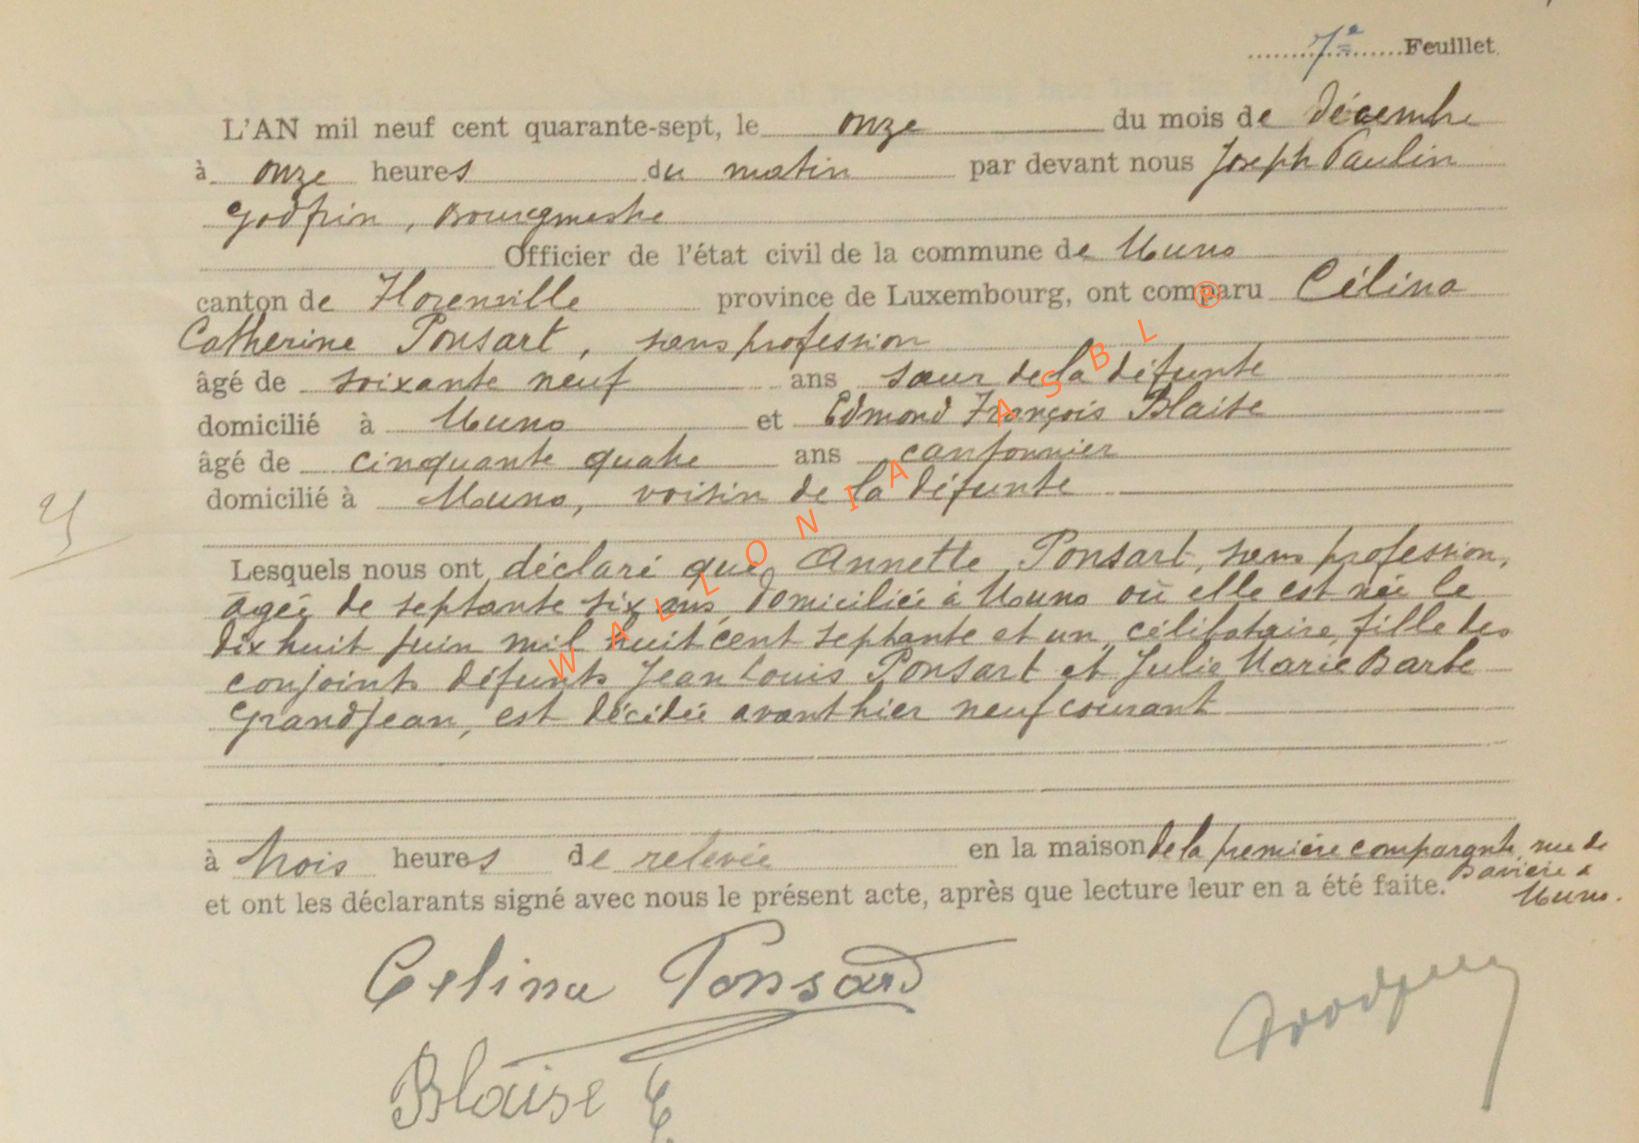 7e Feuillet
L'AN mil neuf cent quarante-sept, le onze du mois de décembre
à onze heures du matin par devant nous Joseph Paulin
Godfrin, Bourgmestre
Officier de l'état civil de la commune de Muno
canton de Florenville province de Luxembourg, ont comparu Célina
Catherine Ponsart, sans profession
âgé de soixante neuf ans sœur de la défunte
domicilié à Muno et Edmond François Blaise
âgé de cinquante quatre ans cantonnier
domicilié à Muno, voisin de la défunte
Lesquels nous ont déclaré que Annette Ponsart, sans profession,
âgée de septante six ans, domiciliée à Muno où elle est née le
dix huit juin mil huit cent septante et un, célibataire, fille des
conjoints défunts Jean Louis Ponsart et Julie Marie Barbe
Grandjean, est décédée avant hier neuf courant
à trois heures de relevée en la maison de la première comparante, rue de
Bavière à
Muno.
et ont les déclarants signé avec nous le présent acte, après que lecture leur en a été faite.
Celina Ponsard
Blaise E.
WALLONIA ASBL ®